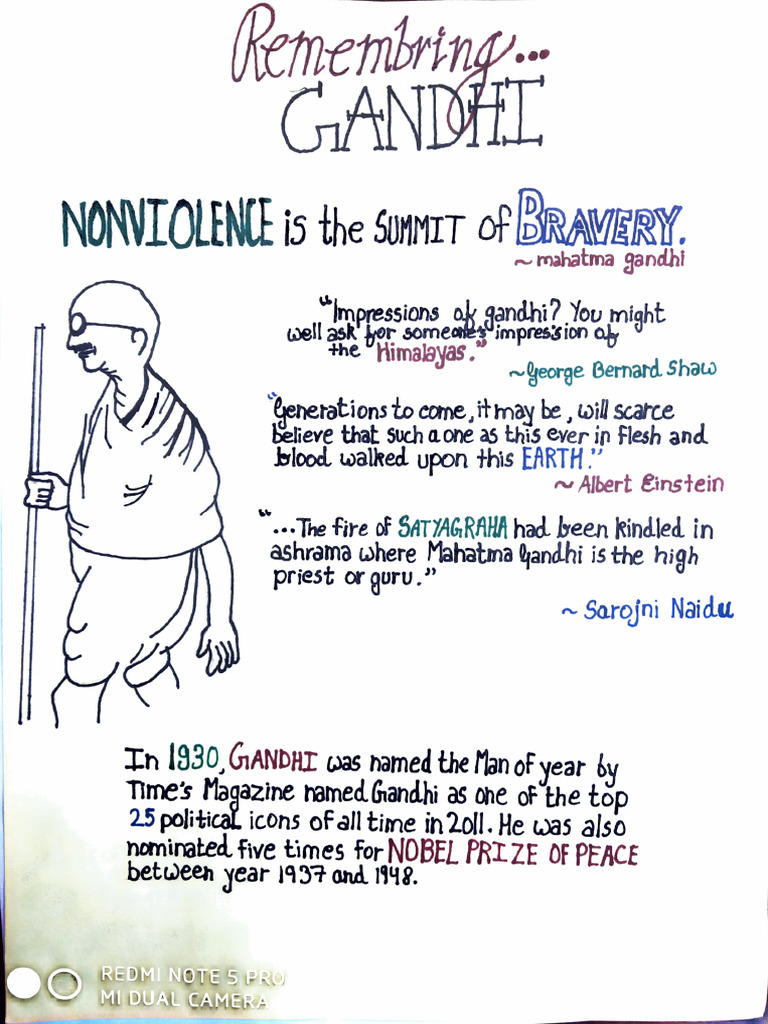 Remembring...
GANDHI
NONVIOLENCE is the SUMMIT of BRAVERY.
~ mahatma gandhi
"Impressions of gandhi? You might
well ask for someone's impression of
the "Himalayas."
~George Bernard Shaw
"Generations to come, it may be, will scarce
believe that such a one as this ever in flesh and
blood walked upon this EARTH."
~ Albert Einstein
"...The fire of SATYAGRAHA had been kindled in
ashrama where Mahatma Gandhi is the high
priest or guru."
~ Sarojni Naidu
In 1930, GANDHI was named the Man of year by
Time's Magazine named Gandhi as one of the top
25 political icons of all time in 2011. He was also
nominated five times for NOBEL PRIZE OF PEACE
between year 1937 and 1948.
REDMI NOTE 5 PRO
MI DUAL CAMERA